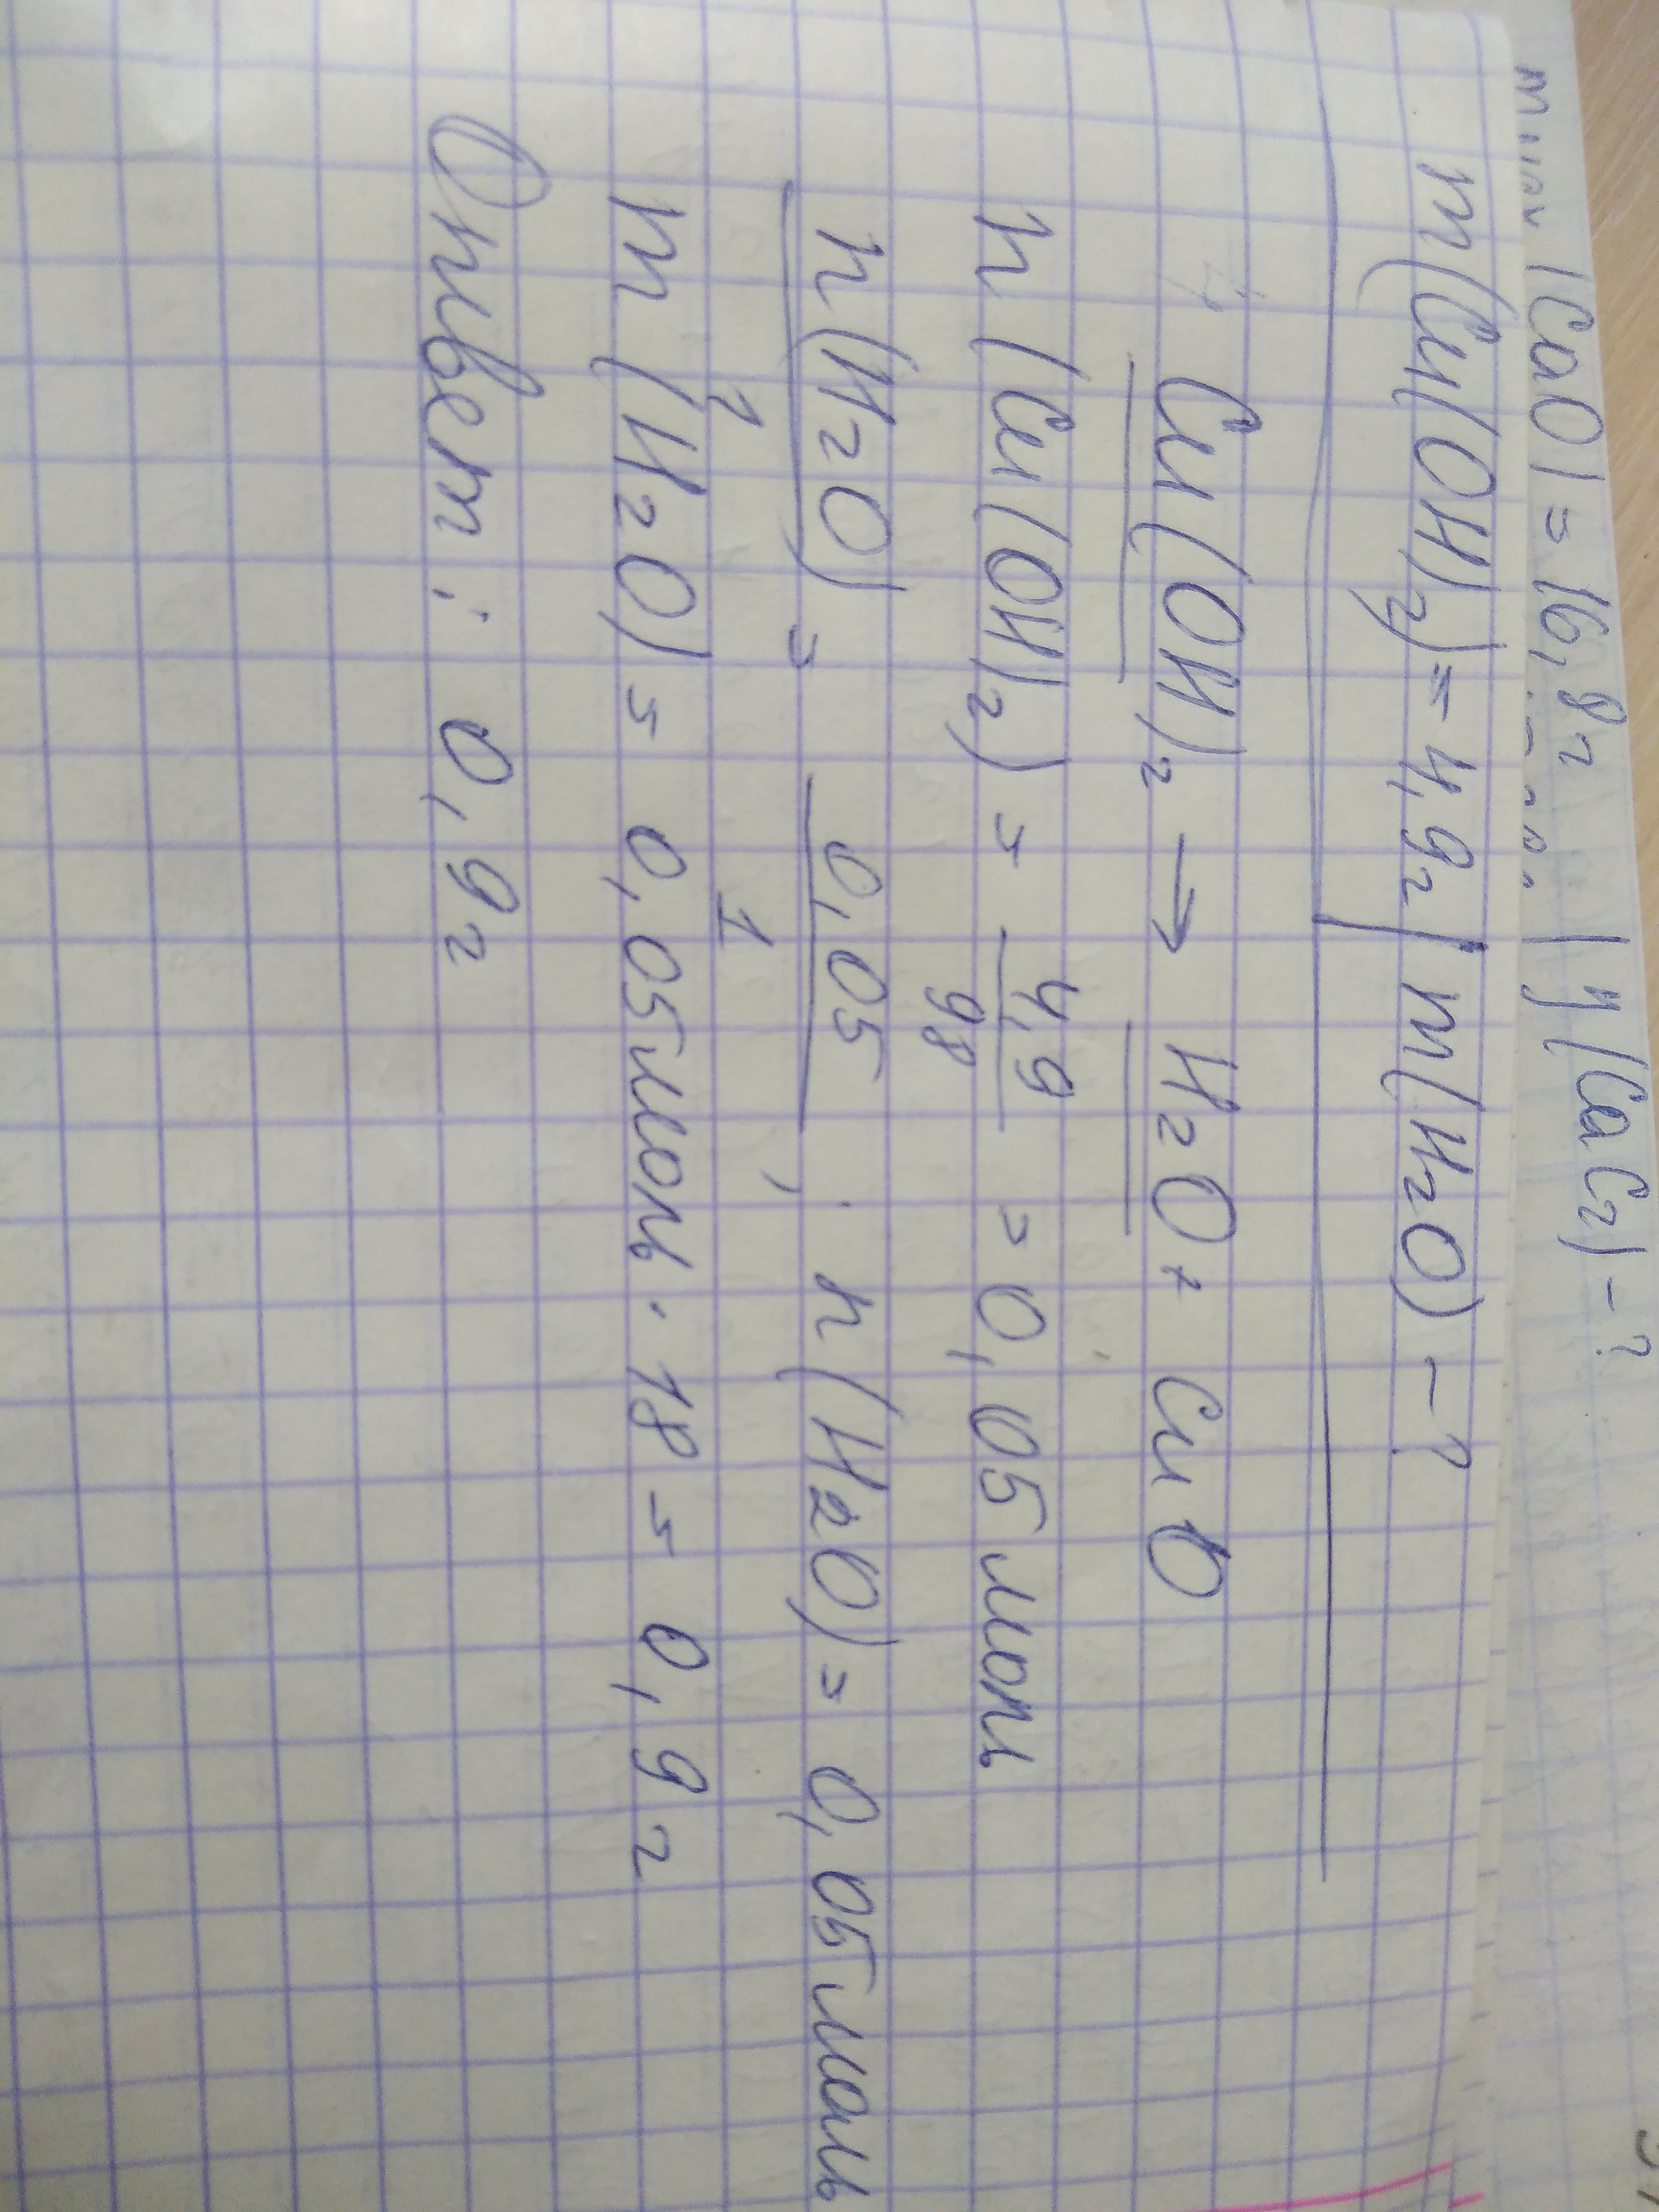 (CaO) = 16,8г | η(CaC₂) - ?
m(Cu(OH)₂) = 4,9г | m(H₂O) - ?
Cu(OH)₂ → H₂O + CuO
n(Cu(OH)₂) = 4,9/98 = 0,05 моль
n(H₂O)/1 = 0,05/1 ; n(H₂O) = 0,05 моль
m(H₂O) = 0,05 моль · 18 = 0,9 г
Ответ: 0,9г